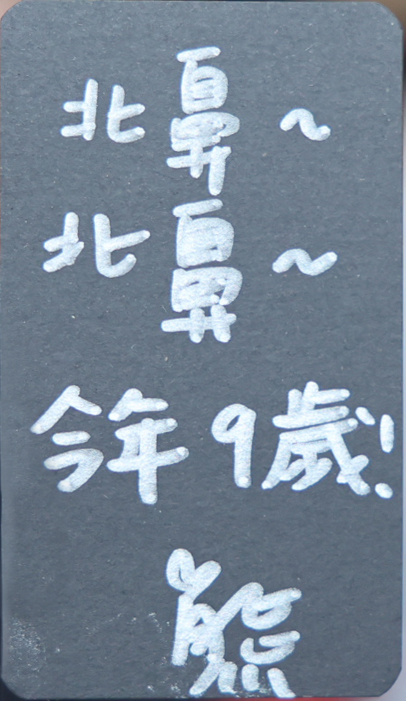 北鼻～
北鼻～
今年9歲!
熊